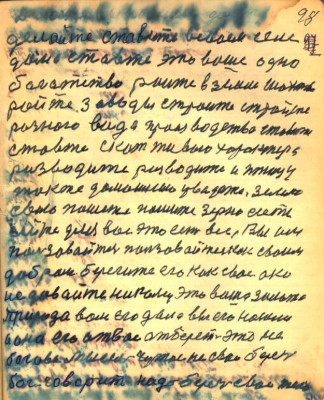 98
делайте ставите
дома ставте это ваше одно
богатство ройте в земли шахты
ройте. Заводы стройте стройте
разного вида производство ставте
ставте скот
разводите разводите и птицу
также домашнию увидете. Землю
свою пашете пашите зерно сейте
сейте для вас это есть все, Вы им
пользовайтесь ползовайтесь как своим
добром берегите его как свое око
не давайте никому это ваша
природа вам его дала вы его нашли
она его от вас отберет это не
богова мысль чужое не свое берет
бог говорит надо берет свои